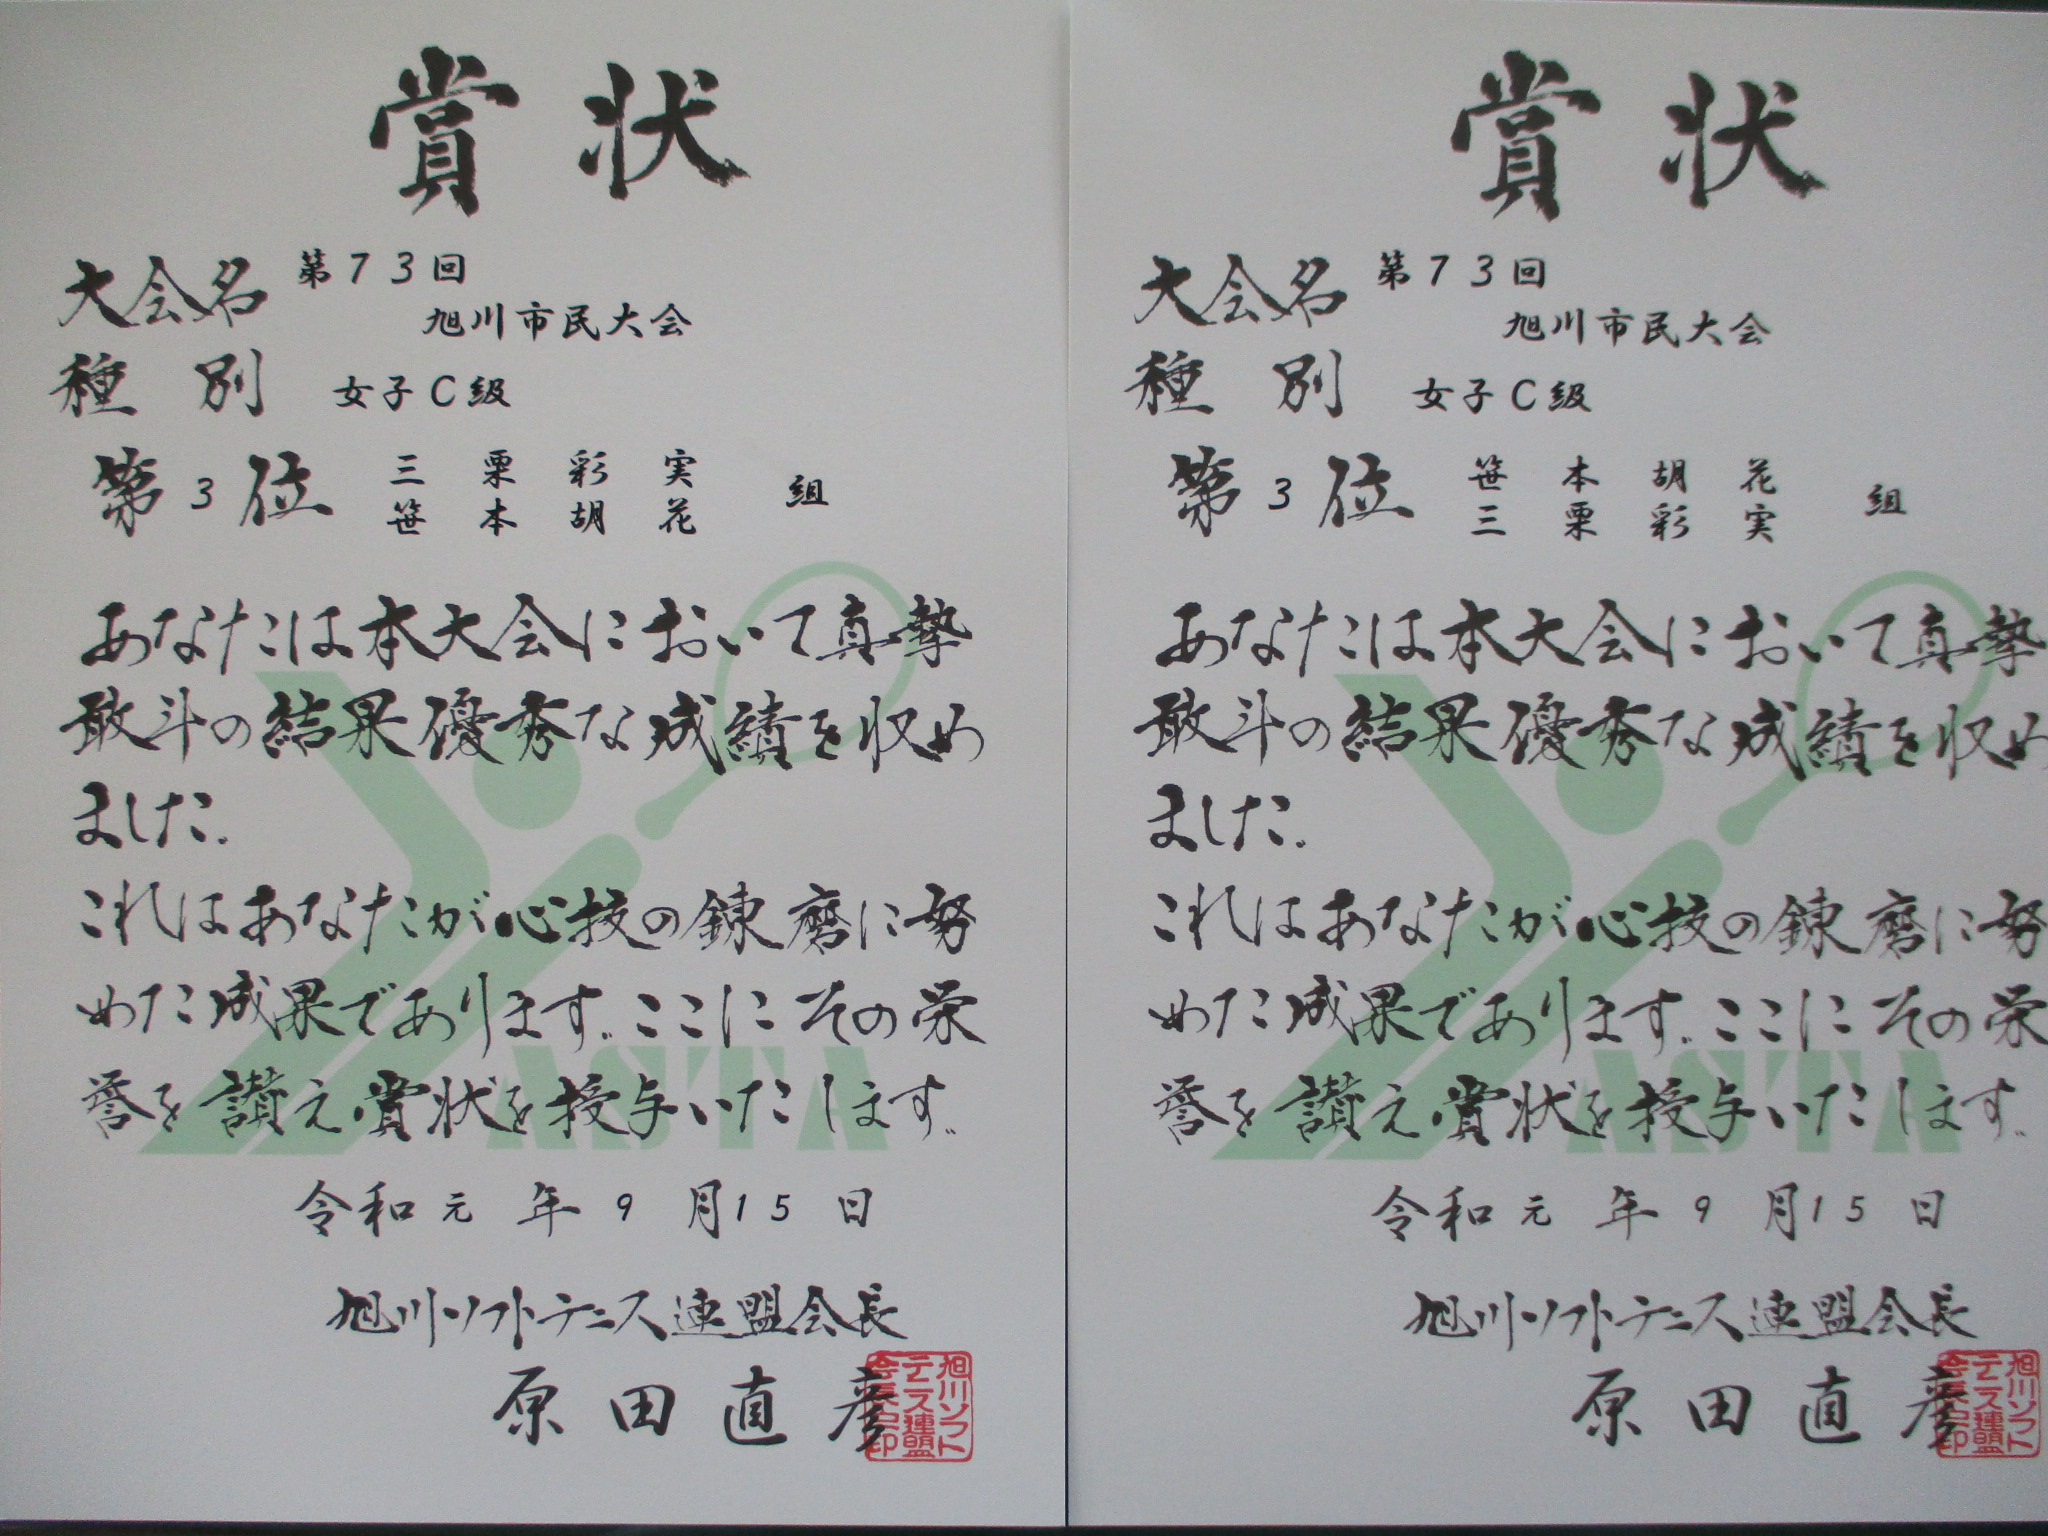 賞状
大会名 第73回
旭川市民大会
種別 女子C級
第3位 三栗彩実
笹本胡花 組
あなたは本大会において真摯
敢斗の結果優秀な成績を収め
ました。
これはあなたが心技の錬磨に努
めた成果であります。ここにその栄
誉を讃え賞状を授与いたします。
ASTA
令和元年9月15日
旭川ソフトテニス連盟会長
原田直彦
旭川ソフト
テニス連盟
会長之印
賞状
大会名 第73回
旭川市民大会
種別 女子C級
第3位 笹本胡花
三栗彩実 組
あなたは本大会において真摯
敢斗の結果優秀な成績を収め
ました。
これはあなたが心技の錬磨に努
めた成果であります。ここにその栄
誉を讃え賞状を授与いたします。
ASTA
令和元年9月15日
旭川ソフトテニス連盟会長
原田直彦
旭川ソフト
テニス連盟
会長之印